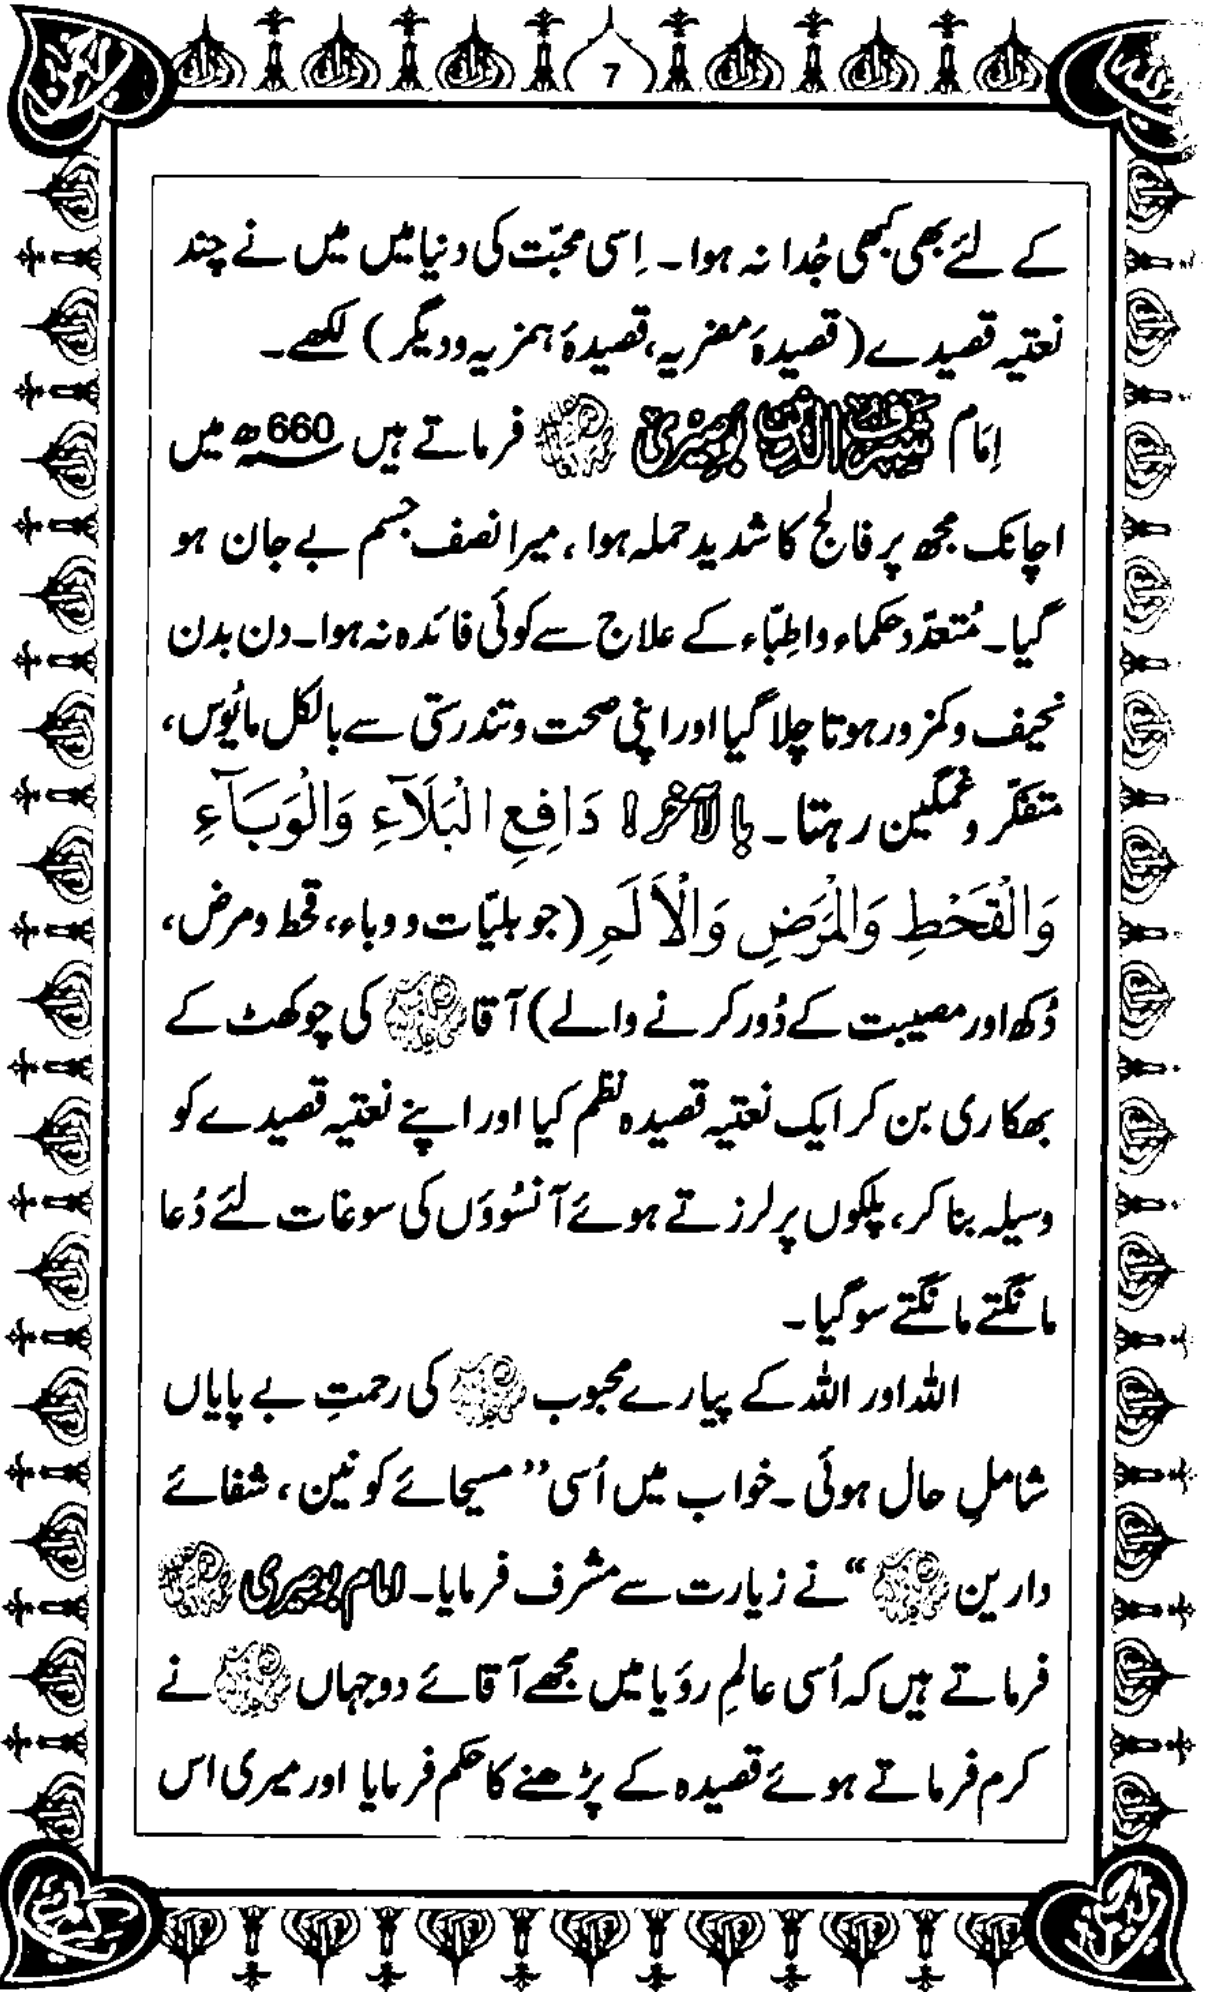 7
کے لئے بھی کبھی جُدا نہ ہوا۔ اِسی محبّت کی دنیا میں میں نے چند
نعتیہ قصیدے (قصیدۂ مضریہ، قصیدۂ ہمزیہ و دیگر) لکھے۔
اِمَام شَرَفُ الدِّین بُوصِیْرِی فرماتے ہیں 660ھ میں
اچانک مجھ پر فالج کا شدید حملہ ہوا، میرا نصف جسم بے جان ہو
گیا۔ مُتعدّد حکماء واطِبّاء کے علاج سے کوئی فائدہ نہ ہوا۔ دن بدن
نحیف و کمزور ہوتا چلا گیا اور اپنی صحت و تندرستی سے بالکل مایُوس،
متفکّر و غمگین رہتا۔ بالآخر! دَافِعِ الْبَلَآءِ وَالْوَبَآءِ
وَالْقَحْطِ وَالْمَرَضِ وَالْاَلَمِ (جو بلیّات و وباء، قحط و مرض،
دُکھ اور مصیبت کے دُور کرنے والے) آقا ﷺ کی چوکھٹ کے
بھکاری بن کر ایک نعتیہ قصیدہ نظم کیا اور اپنے نعتیہ قصیدے کو
وسیلہ بنا کر، پلکوں پر لرزتے ہوئے آنسُوؤں کی سوغات لئے دُعا
مانگتے مانگتے سو گیا۔
اللہ اور اللہ کے پیارے محبوب ﷺ کی رحمتِ بے پایاں
شاملِ حال ہوئی۔ خواب میں اُسی ’’مسیحائے کونین، شفائے
دارین ﷺ‘‘ نے زیارت سے مشرف فرمایا۔ امام بوصیری
فرماتے ہیں کہ اُسی عالمِ رؤیا میں مجھے آقائے دوجہاں ﷺ نے
کرم فرماتے ہوئے قصیدہ کے پڑھنے کا حکم فرمایا اور میری اس